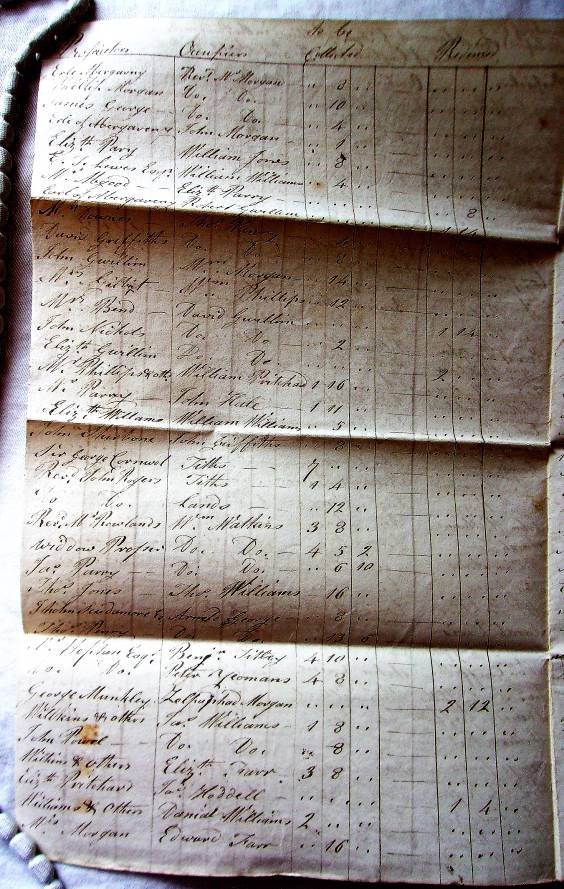 to be
Proprietors Occupiers Collected Redeemed
Erle Abergavny Revd. Mr. Morgan " 8 "
Phillip Morgan Do. Do. " 10 "
James George Do. Do. " 4 "
Erle of Abergaveny John Morgan " 1 "
Elizth Pary William Jones " 8 "
T. Lewes Esqr. William Williams " 4 "
Mr. Wood Elizth Parry 8 "
Mr. Downes
David Griffiths Do. Do. " 8 "
John Gwillim Mrs. Morgan " 14 "
Mrs. Phillips " 12 "
Mrs. Bend David Gwillim 1 14
John Nichols Do. Do. " 2 "
Elizth Gwillim Do. Do. 2
Mr. Phillips & oth William Pritchad 1 16
Mr. Parry John Hale 1 11
Elizth Willams William Williams " 5
John John Griffiths " 8
Sir George Cornwol Tiths 7 " "
Revd. John Rogers Tiths 1 4 "
Do. Do. Lands " 12 "
Revd. Mr. Rowlands Wm. Watkins 3 8 "
Widdow Prosser Do. Do. 4 5 2
Jas. Parry Do. Do. " 6 10
Thos. Jones Thos. Williams " 16 "
John Scudamore Arnold George " 8 "
Parry Do. Do. " 13 6
Esqr. Benjn. 4 10 "
Do. Do. Peter Yeomans 4 8 "
George Munkley Morgan 2 12
Wilkins & others Jas. Williams 1 8 "
John Powel Do. Do. " 8 "
Watkins & others Elizth Farr 3 8 "
Elizth Pritchard Jas. Hoddell 1 4
Williams & Others Danial Williams 2 " "
Mrs. Morgan Edward Farr " 16 "